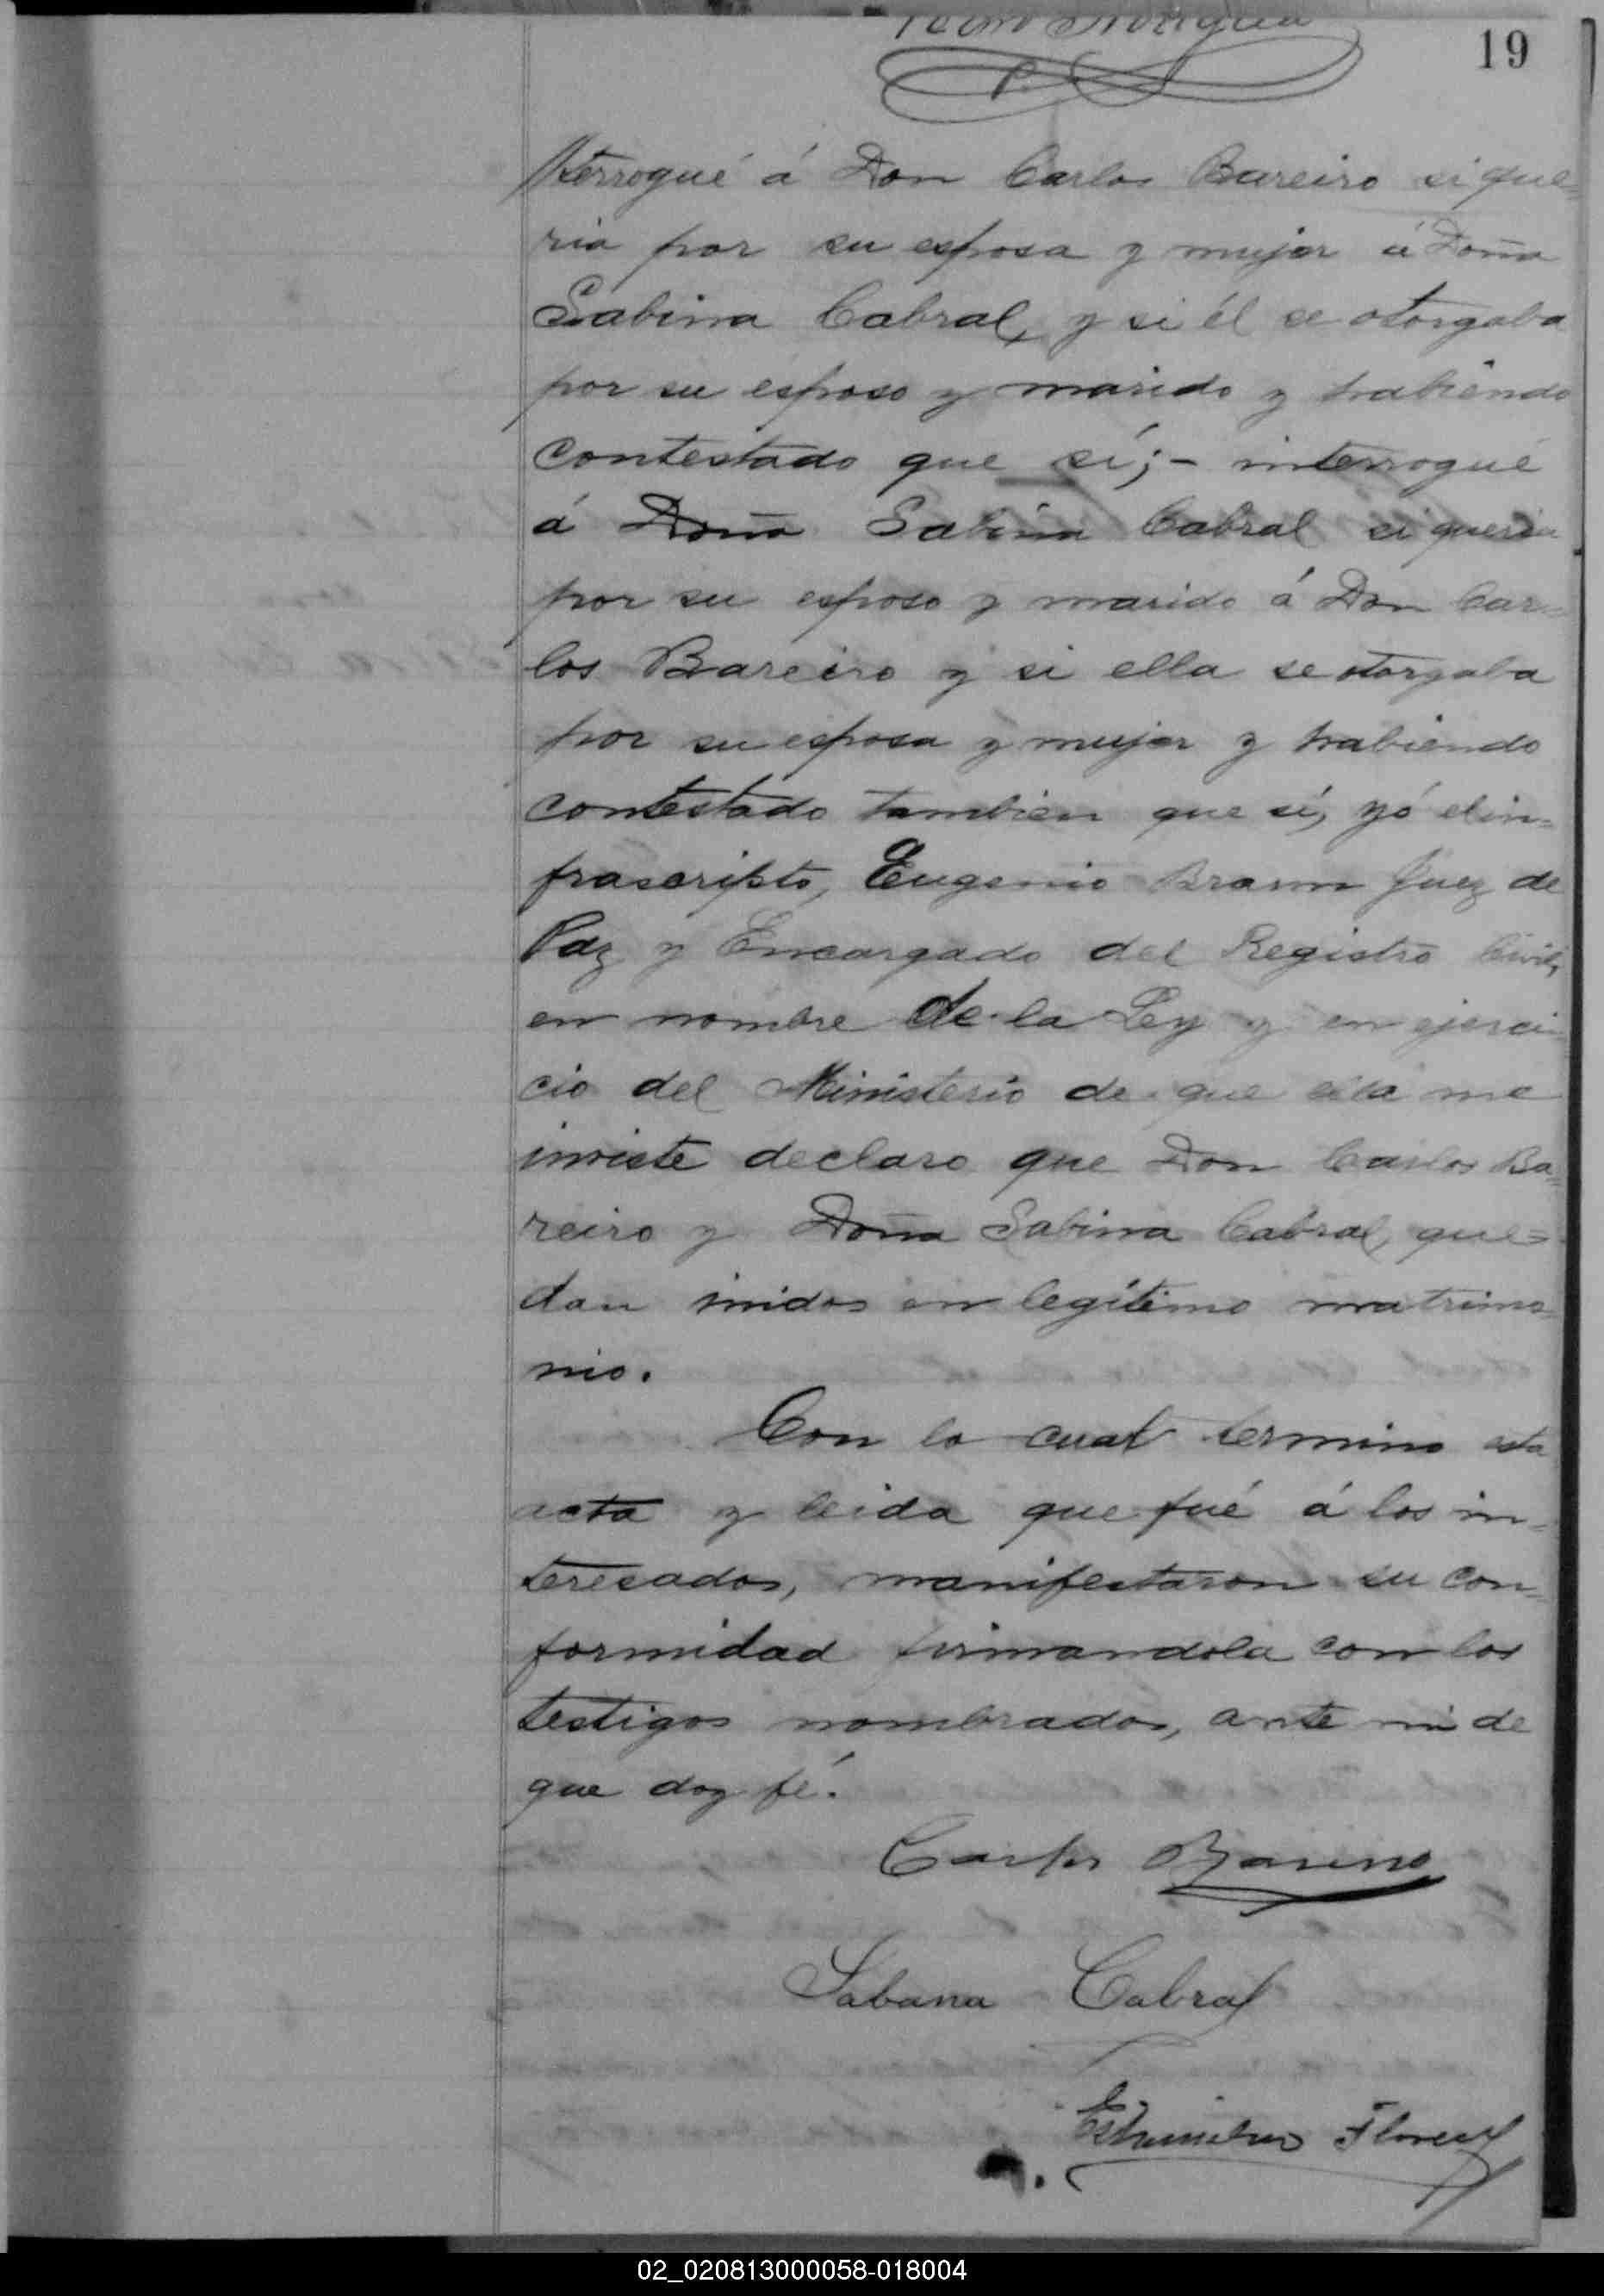 19
terrogué á Don Carlos Bareiro si que=
ria por su esposa y mujer á Doña
Sabina Cabral, y si él se otorgaba
por su esposo y marido y habiendo
contestado que sí;- interrogué
á Doña Sabina Cabral si queria
por su esposo y marido á Don Car=
los Bareiro y si ella se otorgaba
por su esposa y mujer y habiendo
contestado tambien que sí, yó el in=
frascripto, Eugenio Braun Juez de
Paz y Encargado del Registro Civil,
en nombre de la Ley y en ejerci
cio del Ministerio de que ella me
inviste declaro que Don Carlos Ba=
reiro y Doña Sabina Cabral, que=
dan unidos en legítimo matrimo=
nio.
Con lo cual termino esta
acta y leida que fué á los in=
teresados, manifestaron su con=
formidad firmandola con los
testigos nombrados, ante mi de
que doy fé.
Carlos Bareiro
Sabana Cabral
Flores
02_020813000058-018004